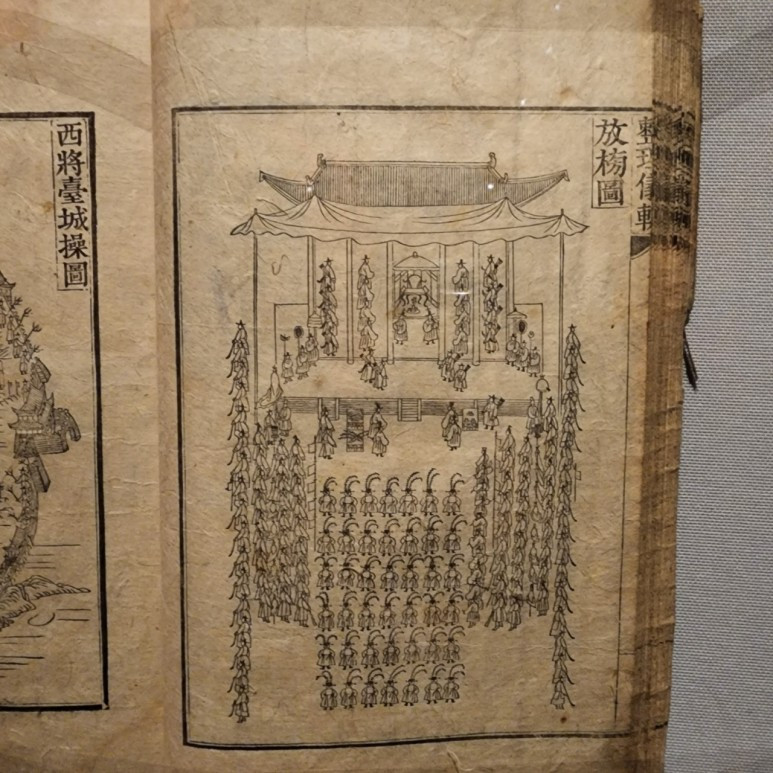 整理儀軌
放榜圖
西將臺城操圖